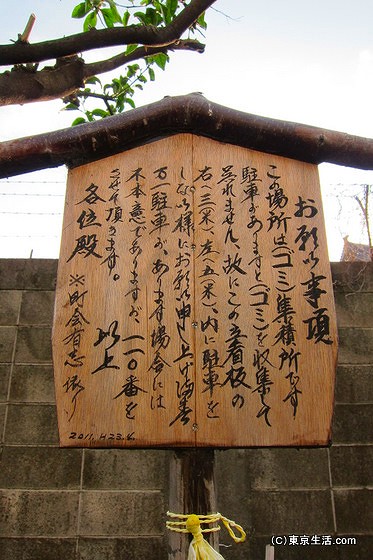 お願い事項
この場所は(ゴミ)集積所です
駐車がありますと(ゴミ)を収集して
呉れません、故にこの立看板の
右(三米)、左(五米)、内に駐車を
しない様にお願い申し上げます
万一駐車が、あります場合には
不本意でありますが、一一〇番を
させて頂きます。
以上
各位殿
※町会有志依り
2011. H23.6.
(C)東京生活.com